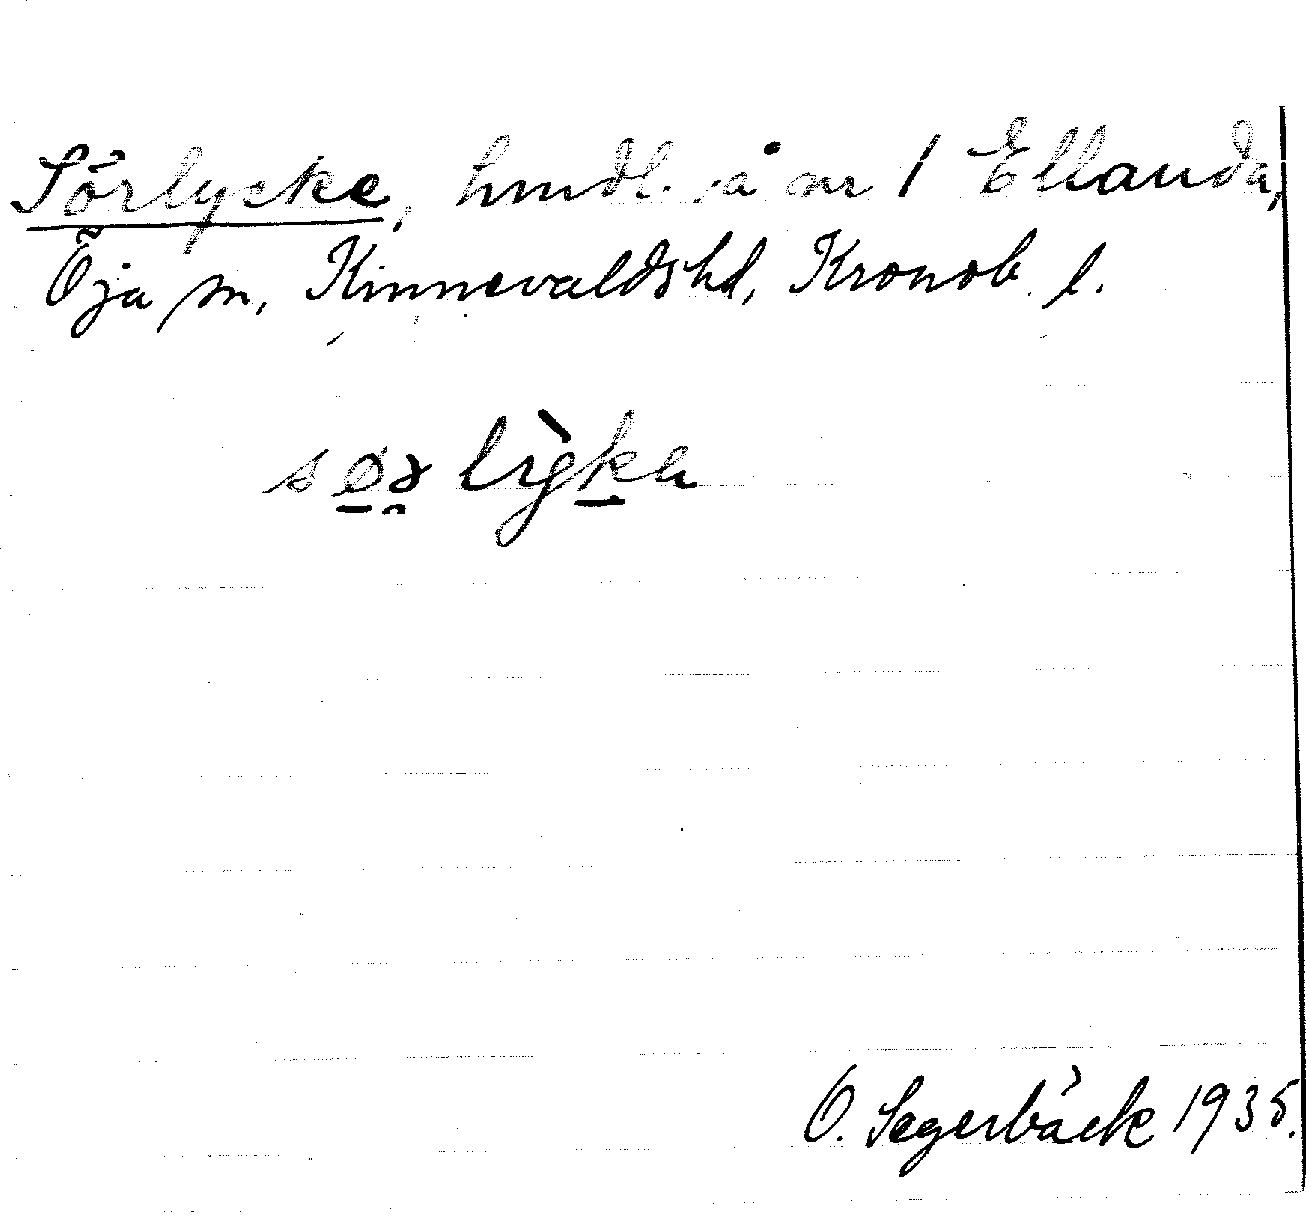 Sörlycke, hmdl. å nr 1 Ellanda,
Öja sn, Kinnevalds hd, Kronob. l.
O. Segerbäck 1935.